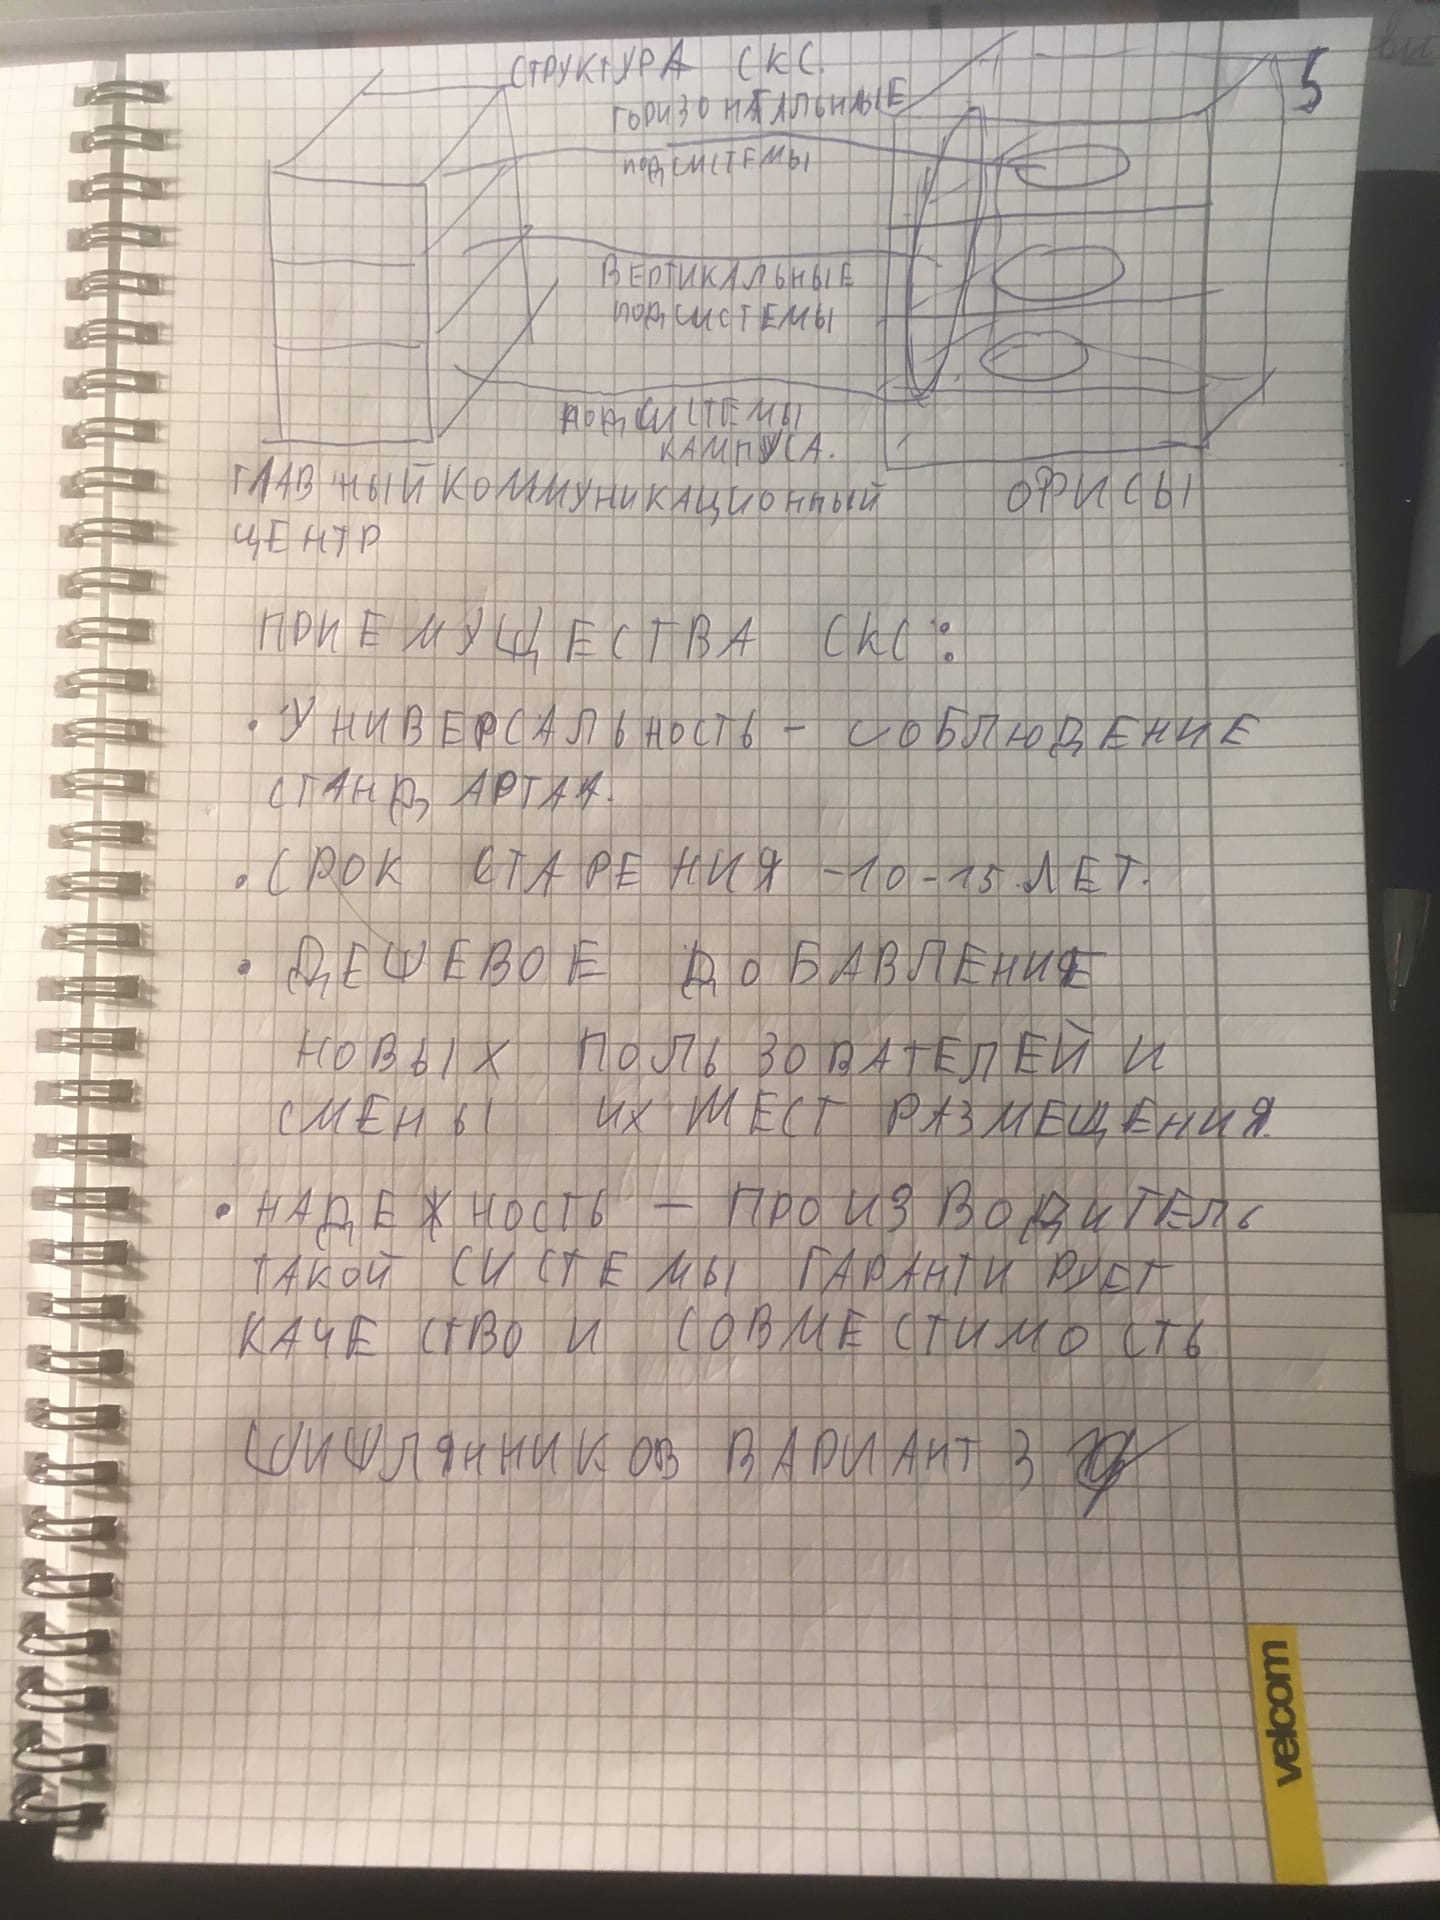 СТРУКТУРА СКС.
5
ГОРИЗОНАТАЛЬНЫЕ
ПОДСИСТЕМЫ
ВЕРТИКАЛЬНЫЕ
ПОДСИСТЕМЫ
ПОДСИСТЕМЫ
КАМПУСА.
ГЛАВНЫЙ КОММУНИКАЦИОННЫЙ
ЦЕНТР
ОФИСЫ
ПРИЕМУЩЕСТВА СКС:
• УНИВЕРСАЛЬНОСТЬ - СОБЛЮДЕНИЕ
СТАНДАРТАА.
• СРОК СТАРЕНИЯ -10-15 ЛЕТ.
• ДЕШЕВОЕ ДОБАВЛЕНИЕ
НОВЫХ ПОЛЬЗОВАТЕЛЕЙ И
СМЕНЫ ИХ МЕСТ РАЗМЕЩЕНИЯ.
• НАДЕЖНОСТЬ - ПРОИЗВОДИТЕЛЬ
ТАКОЙ СИСТЕМЫ ГАРАНТИРУЕТ
КАЧЕСТВО И СОВМЕСТИМОСТЬ
ШИШЛЯННИКОВ ВАРИАНТ 3
velcom